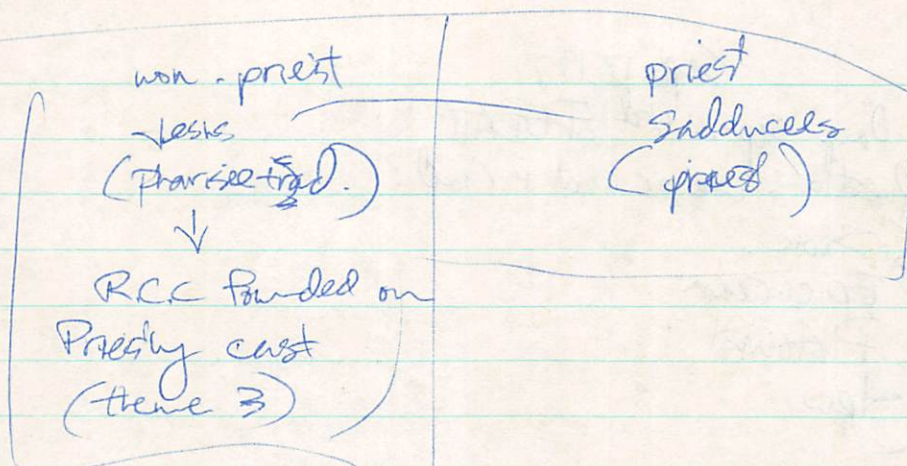 non-priest
Jesus
(pharisee trad.)
↓
R.C.C founded on
Priestly cast
(theme 3)
priest
Sadducees
(priest)